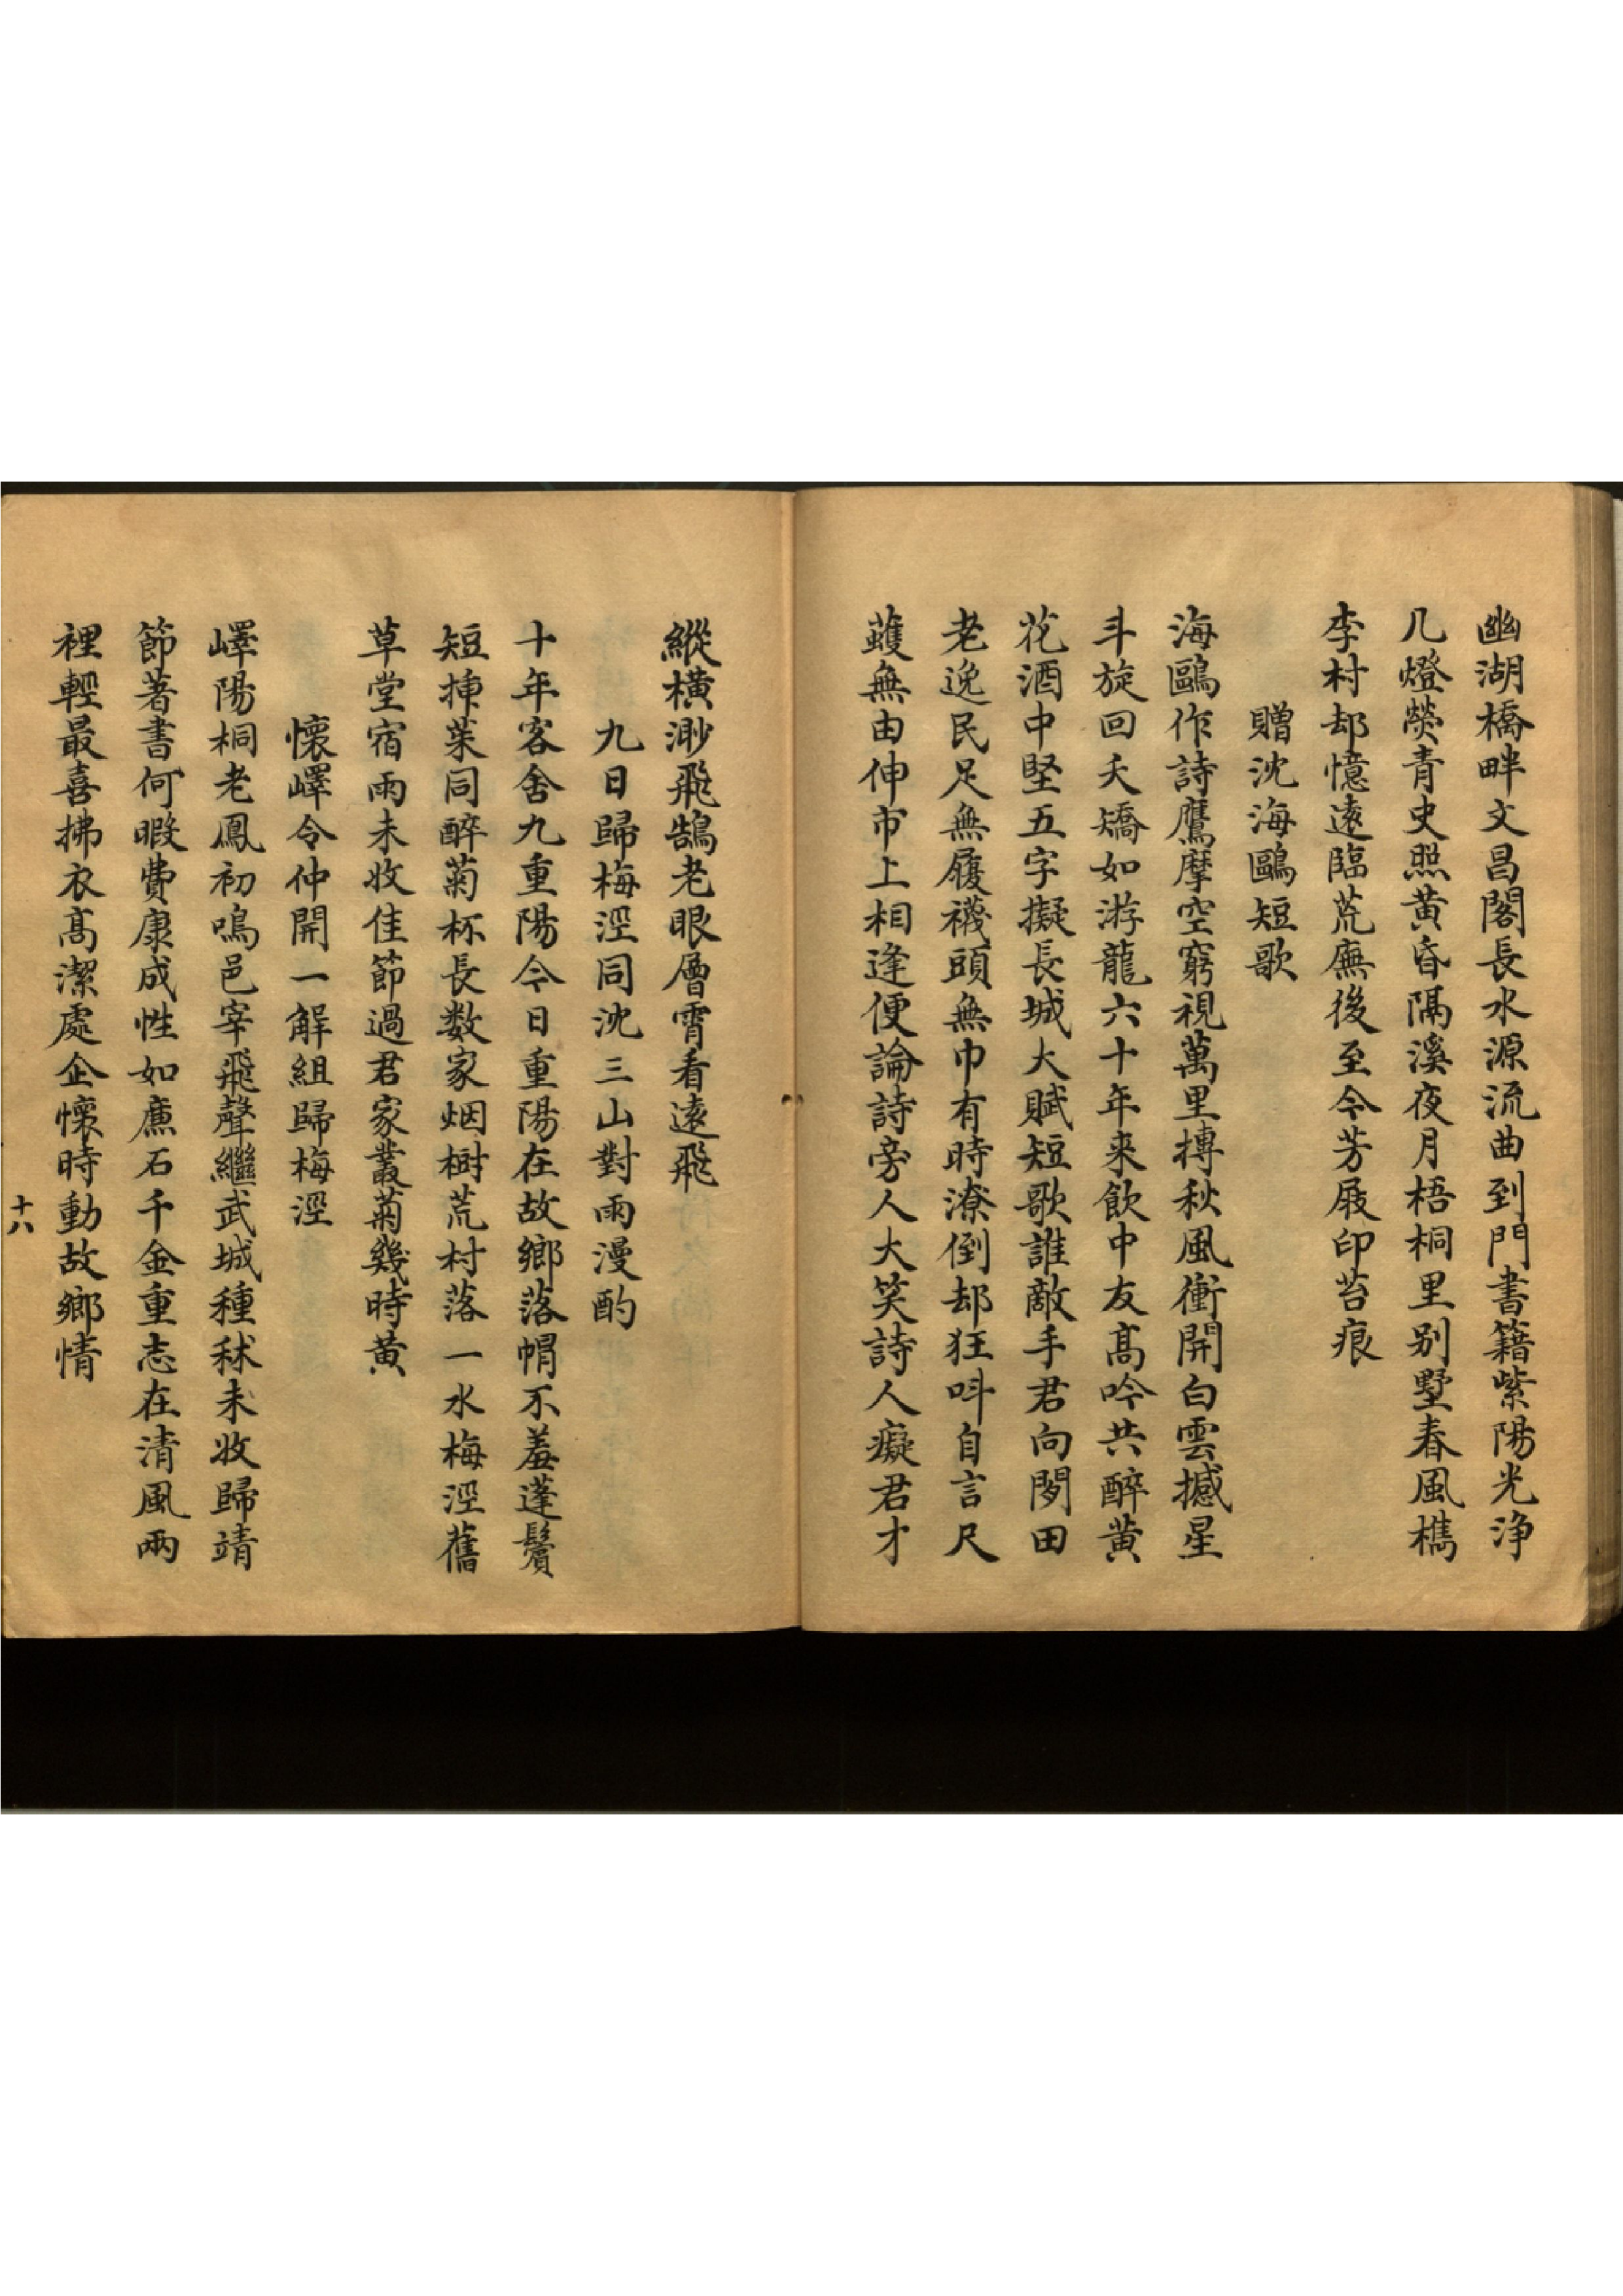 幽湖橋畔文昌閣長水源流曲到門書籍紫陽光浄
几燈熒青史照黃昏隔溪夜月梧桐里別墅春風檇
李村却憶遠臨荒廡後至今芳屐印苔痕
贈沈海鷗短歌
海鷗作詩鷹摩空窮視萬里摶秋風衝開白雲撼星
斗旋回夭矯如游龍六十年来飲中友高吟共醉黃
花酒中堅五字擬長城大賦短歌誰敵手君向閿田
老逸民足無履襪頭無巾有時潦倒却狂呌自言尺
蠖無由伸市上相逢便論詩旁人大笑詩人癡君才
縱橫渺飛鵠老眼層霄看遠飛
九日歸梅涇同沈三山對雨漫酌
十年客舍九重陽今日重陽在故鄉落帽不羞蓬鬢
短揷茱同醉菊杯長数家烟樹荒村落一水梅涇舊
草堂宿雨未收佳節過君家叢菊幾時黃
懷嶧令仲開一解組歸梅涇
嶧陽桐老鳳初鳴邑宰飛聲繼武城種秫未收歸靖
節著書何暇費康成性如廉石千金重志在清風兩
裡輕最喜拂衣高潔處企懷時動故鄉情
十八